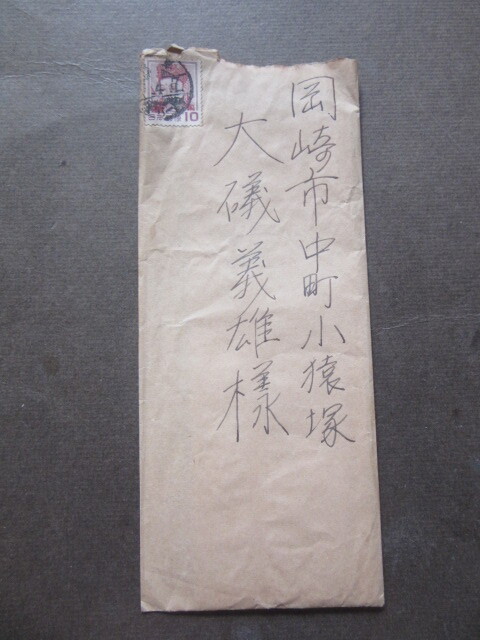 岡崎市中町小猿塚
大礒義雄様
10